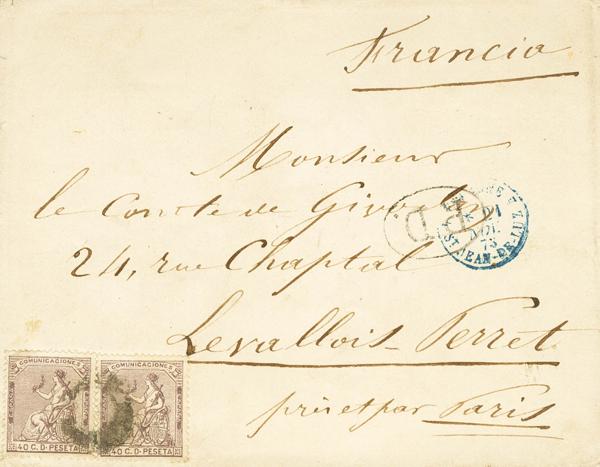 Francia
Monsieur
le Comte de
24, rue Chaptal
Levallois-Perret
par Paris
P.D
21
73
ST JEAN-DE-LUZ
COMUNICACIONES
ESPAÑA
40 C. D. PESETA
COMUNICACIONES
40 C. D. PESETA